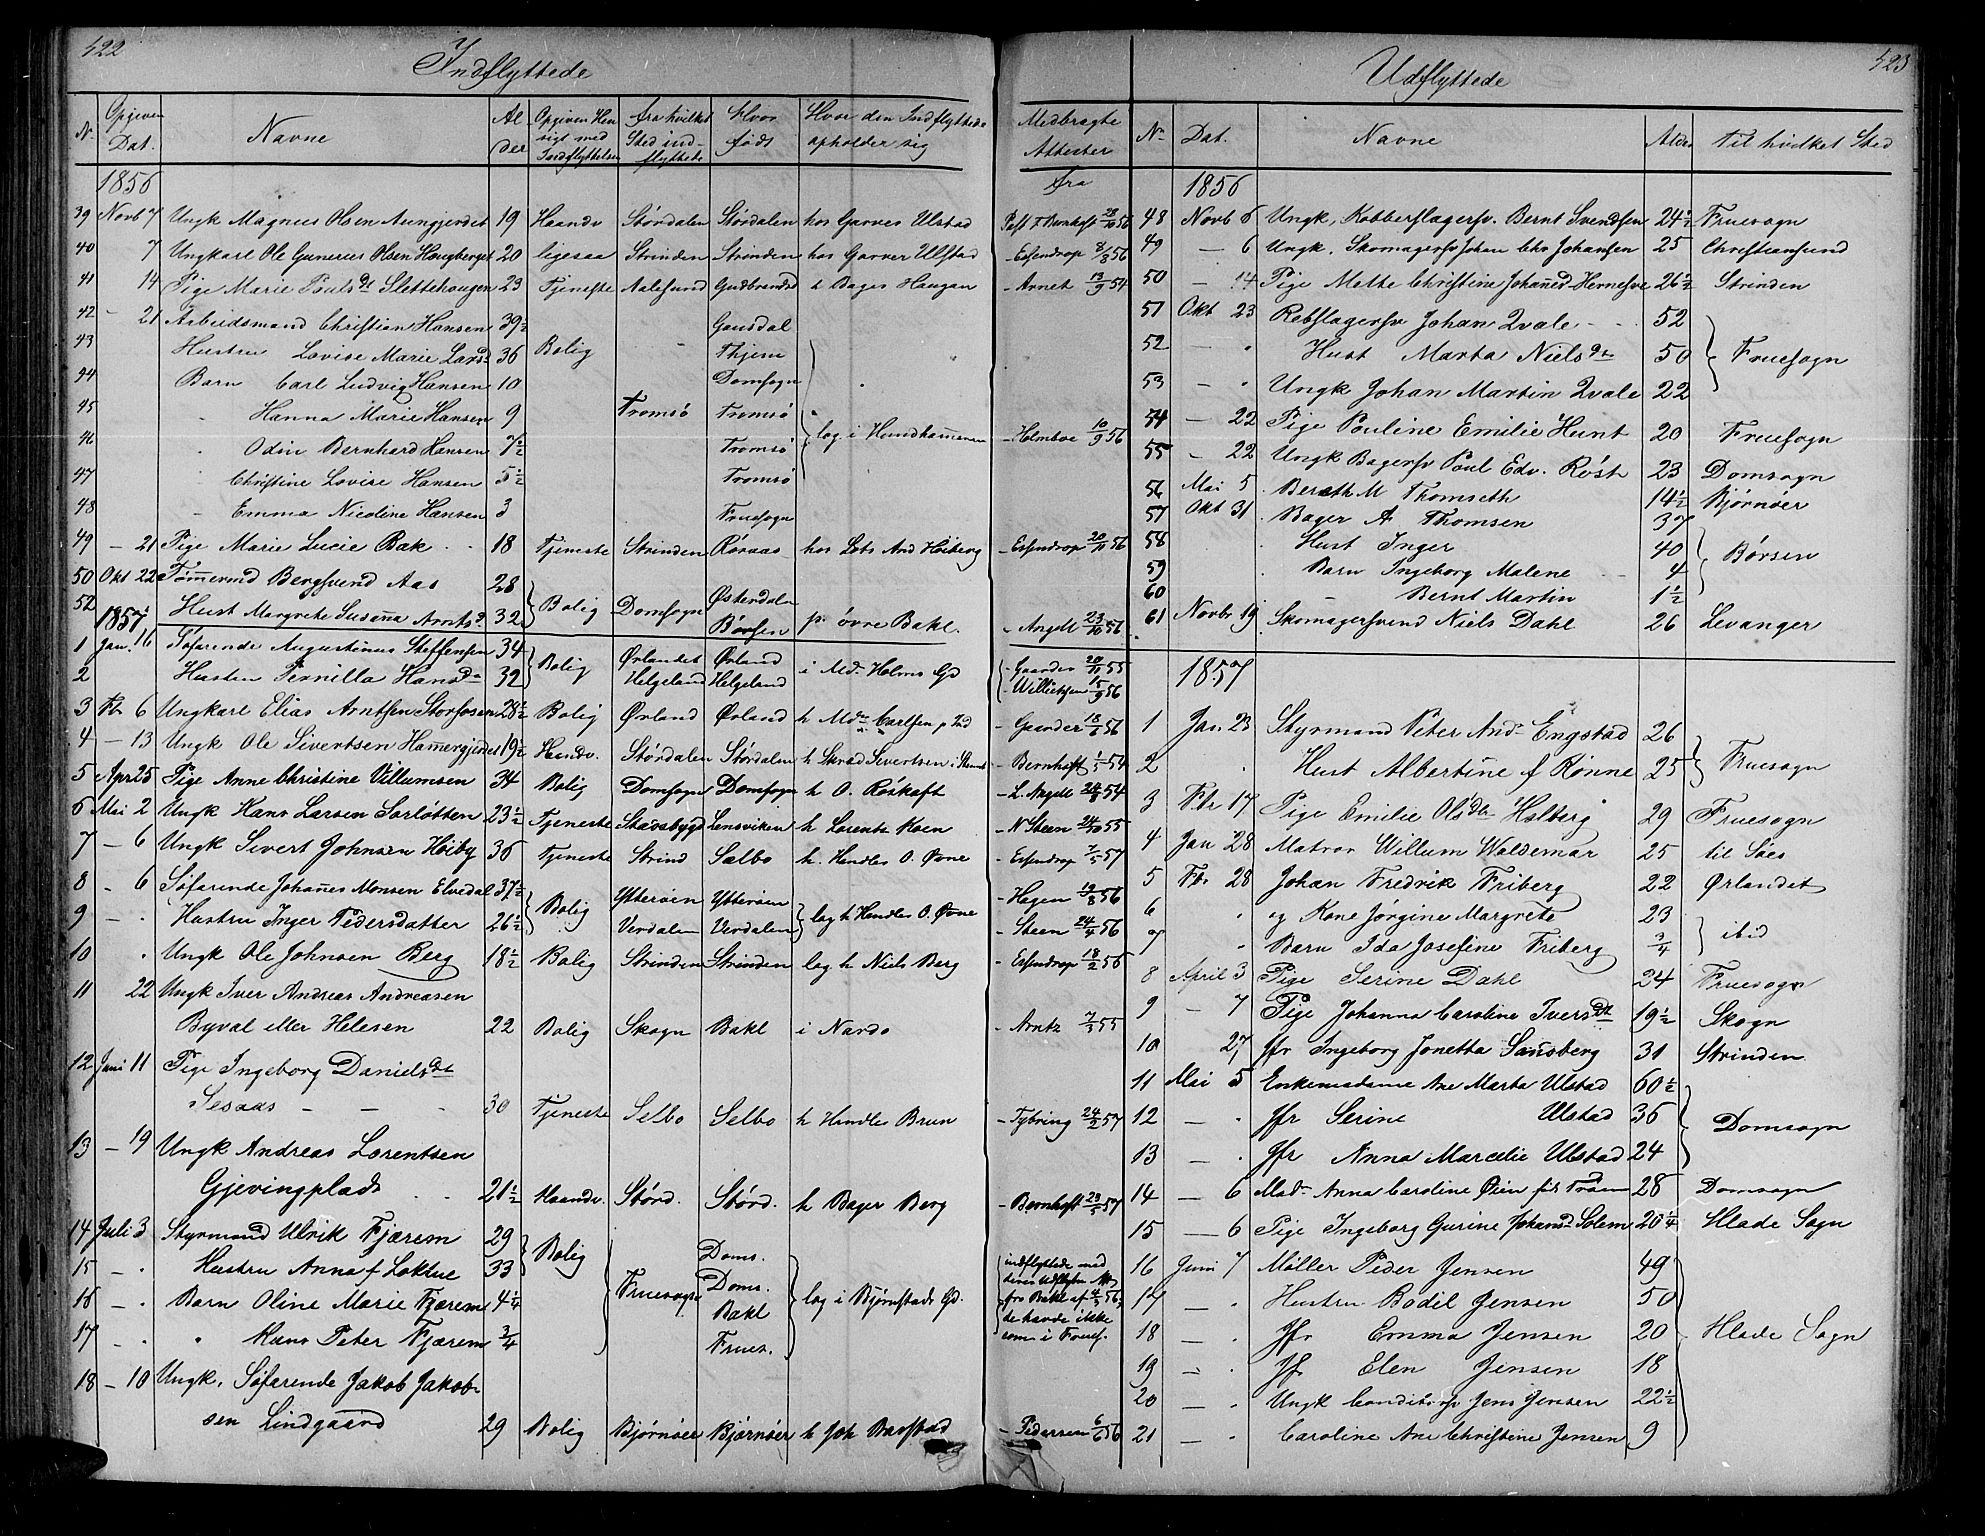 422
Indflyttede
No Opgiven Dat. Navne Alder Opgiven Hensigt med Indflyttelsen fra hvilket Sted indflyttede Hvor født Hvor den Indflyttede opholder sig Medbragte Attester fra
1856
39 Novb 7 Ungk Magnus Olsen Aungjerdet 19 Haandv Størdalen Størdalen hos Garver Ulstad Bernhoft 28/10 56
40 7 Ungkarl Ole Gunerius Olsen Hougberget 20 ligesaa Strinden Strinden hos Garver Ullstad - Essendrop 8/3 56
41 14 Pige Marie Poulsdt Slettehougen 23 Tjeneste Aalesund Gudbrandsd h Bager Haugan - Arnet 13/9 54
42 - 21 Arbeidsmand Christian Hansen 39½ Gausdal
43 Hustru Lovise Marie Larsd 36 Bolig Thjem
44 Barn Carl Ludvig Hansen 10 Domsogn
45 Hanna Marie Hansen 9 Tromsö Tromsö
46 Odin Bernhard Hansen 7½ Tromsö log i Hundhameren - Holmboe 10/9 56
47 Christine Lovise Hansen 5½ Tromsö
48 Emma Nicoline Hansen 3 Fruesogn
49 - 21 Pige Marie Lucie Bak 18 Tjeneste Strinden Röraas hos Lots And Høiberg - Essendrop 20/11 56
50 Okt 22 Tømermd Bergsvend Aas 28 Bolig Domsogn Østerdalen
52 Hust Margrete Susana Arntsd 32 Børsen p. øvre Bakl. - Angell 23/10 56
1857
1 Jan. 16 Søfarende Augustinus Steffensen 34 Bolig Ørlandet Ørland i Md. Holms Gd - Gaarder 20/11 55
2 Hustru Pernilla Hansd 32 Helgeland Helgeland - Willichsen 15/9 56
3 Fb 6 Ungkarl Elias Arntsen Storfosen 28½ Bolig Ørland Ørland h Md Carlsen p Ind - Gaarder 18/1 56
4 - 13 Ungk Ole Sivertsen Hamergjerdet 19½ Handv. Størdalen Størdalen h Skrad Sivertsen - Bernhoft 1/5 54
5 Apr 25 Pige Anne Christine Villumsen 34 Bolig Domsogn Domsogn h O. Röskaft - L. Angell 54
6 Mai 2 Ungk Hans Larsen Sorløtten 23½ Tjeneste Stadsbygd Lensviken h Lorents Koen - N Steen 24/10 55
7 - 6 Ungk Sivert Johnsen Høiby 36 Tjeneste Strind Sælbo h. Handles O. Øvne - Essendrop 7/5 57
8 - 6 Søfarende Johanes Monsen Elvedal 37½ Bolig Ytterøen Ytterøen - Hagen 19/8 56
9 - Hustru Inger Pedersdatter 26½ Verdalen Verdalen log h Handles O. Øvne - Steen 24/4 56
10 Ungk Ole Johnsen Berg 18½ Bolig Strinden Strinden log h Niels Berg - Essendrop 18/2 56
11 22 Ungk Iver Andreas Andreasen
Byval eller Helesen 22 Bolig Skogn Bakl i Nardo - Arntz 7/3 55
12 Juni 11 Pige Ingeborg Danielsdt
Sesaas - - 30 Tjeneste Selbo Selbo h Handles Brun - Tybring 24/2 57
13 - 19 Ungk Andreas Lorentsen
Gjevingplads 21½ Haandv. Størd. Størd. h Bager Berg - Bernhoft 23/5 57
14 Juli 3 Styrmand Ulrik Fjærem 29 Bolig Fruesogn Doms. indflyttede med
15 - Hustru Anna f Loktue 33 Doms.
16 - Barn Oline Marie Fjærem 4¼ Bakl log i Bjørnstads Gd. fra Bakl af 4/3 56,
17 " Hans Peter Fjærem ¾ Frues. de havde ikke som i Fruesf.
18 - 10 Ungk. Søfarende Jakob Jakob-
sen Lindgaard 29 Bolig Bjørnøer Bjørnøer h Joh Barstad - Pedersen 6/6 56
423
Udflyttede
No Dat. Navne Alder til hvilket Sted
1856
48 Novb 6 Ungk. Kobberslagersv. Bernt Svendsen 24½ Fruesogn
49 - 6 Ungk. Skomagersv Johan Chr Johansen 25 Christiansund
50 - 14 Pige Mette Christine Johansd Hernesve 26½ Strinden
51 Okt 23 Rebslagersv Johan Qvale 52
52 - " Hust Marta Nielsdt 50 Fruesogn
53 - " Ungk Johan Martin Qvale 22
54 - 22 Pige Pouline Emilie Hunt 20 Fruesogn
55 - 22 Ungk Bagersv Poul Edv. Röst 23 Domsogn
56 Mai 5 Berath M Thomseth 14½ Bjørnøer
57 Okt 31 Bager A Thomsen 37
58 Hust Inger 40 Børsen
59 Barn Ingeborg Malene 4
60 - Bernt Martin 1½
61 Novbr 19 Skomagersvend Niels Dahl 26 Levanger
1857
1 Jan 23 Styrmand Peter And. Engstad 26
2 Hust Albertine f Rønne 25 Fruesogn
3 Fbr 17 Pige Emilie Olsdt Holberg 29 Fruesogn
4 Jan 28 Matros Willum Woldemar 25 til Søes
5 Fbr 28 Johan Fredrik Friberg 22 Ørlandet
6 " og Kone Jörgine Margrete 23
7 " Barn Ida Josefine Friberg ¾ ibid
8 April 3 Pige Serine Dahl 24 Fruesogn
9 - 7 Pige Johanna Caroline Iversdt 19½ Skogn
10 27 Jfr Ingeborg Jonetta Sandsberg 31 Strinden
11 Mai 5 Enkemadame Ane Marta Ulstad 60½
12 - " Jfr Serine Ulstad 36 Domsogn
13 - " Jfr Anna Marcelie Ulstad 24
14 - 6 Mad. Anna Caroline Øien föd Tröm 28 Domsogn
15 - 6 Pige Ingeborg Gurine Johansd Solem 20¼ Hlade Sogn
16 Juni 7 Möller Peder Jensen 49
17 - " Hustru Bodil Jensen 50
18 - " Jfr Emma Jensen 20 Hlade Sogn
19 - " Jf Elen Jensen 18
20 - " Ungk Conditorsv Jens Jensen 22½
21 - " Caroline Ane Christine Jensen 9